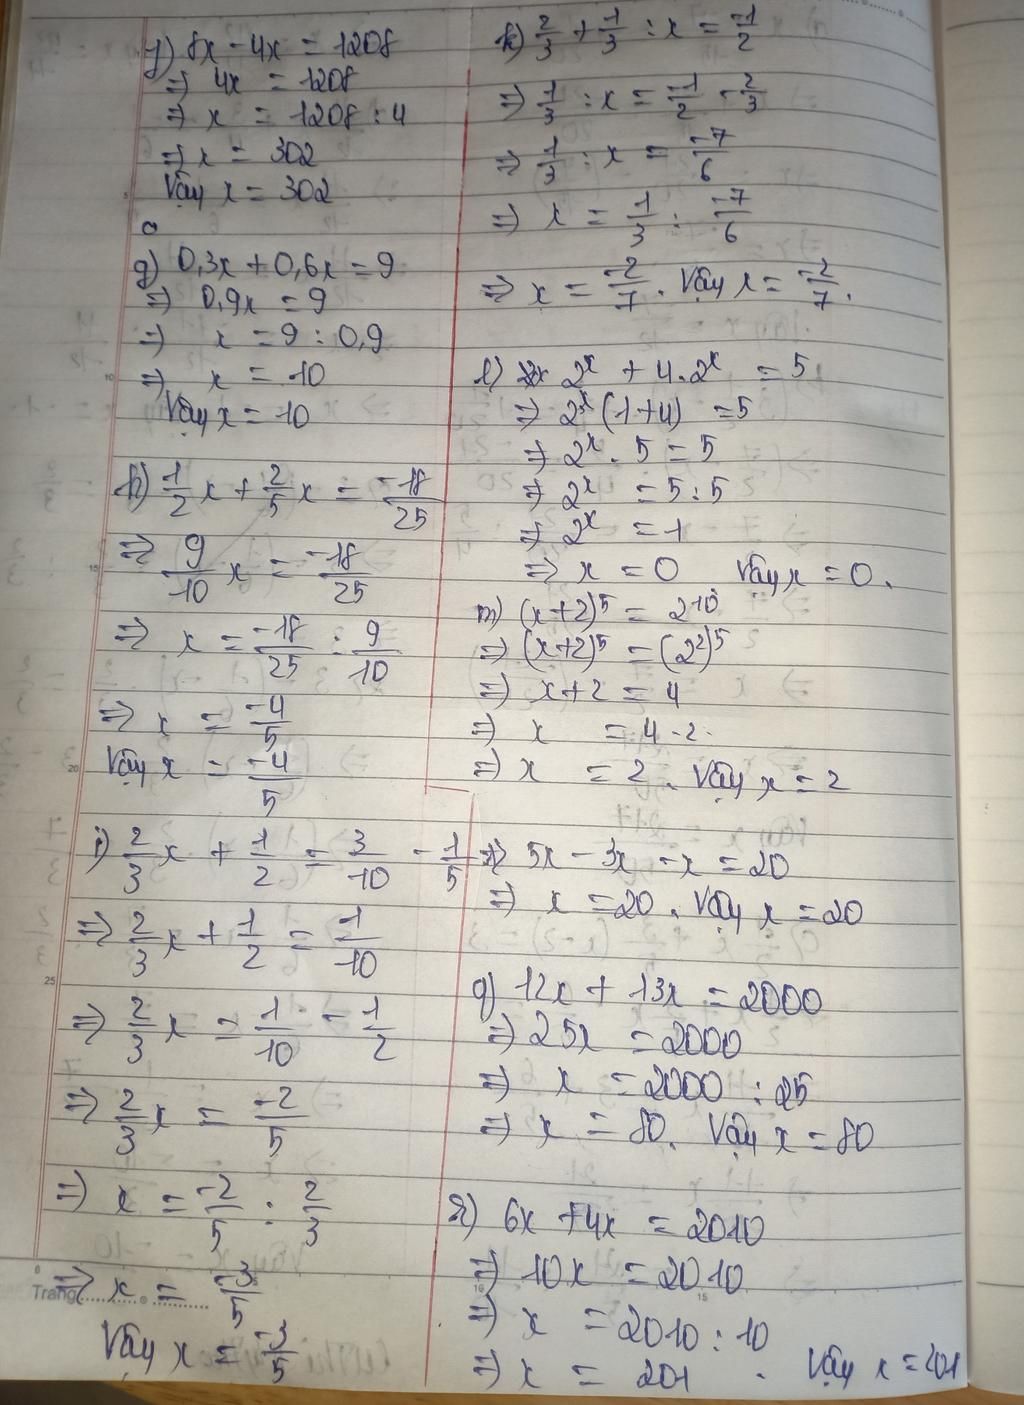 f) 8x - 4x = 1208
⇒ 4x = 1208
⇒ x = 1208 : 4
⇒ x = 302
Vậy x = 302
g) 0,3x + 0,6x = 9
⇒ 0,9x = 9
⇒ x = 9 : 0,9
⇒ x = 10
Vậy x = 10
h) 1/2 x + 2/5 x = -18/25
⇒ 9/10 x = -18/25
⇒ x = -18/25 : 9/10
⇒ x = -4/5
Vậy x = -4/5
i) 2/3 x + 1/2 = 3/10 - 1/5
⇒ 2/3 x + 1/2 = 1/10
⇒ 2/3 x = 1/10 - 1/2
⇒ 2/3 x = -2/5
⇒ x = -2/5 : 2/3
⇒ x = -3/5
Vậy x = -3/5
Trang
k) 2/3 + 1/3 : x = -1/2
⇒ 1/3 : x = -1/2 - 2/3
⇒ 1/3 : x = -7/6
⇒ x = 1/3 : -7/6
⇒ x = -2/7. Vậy x = -2/7.
l) 2^x + 4.2^x = 5
⇒ 2^x (1+4) = 5
⇒ 2^x . 5 = 5
⇒ 2^x = 5 : 5
⇒ 2^x = 1
⇒ x = 0 Vậy x = 0.
m) (x+2)^5 = 2^10
⇒ (x+2)^5 = (2^2)^5
⇒ x+2 = 4
⇒ x = 4 - 2
⇒ x = 2. Vậy x = 2
5x - 3x - x = 20
⇒ x = 20. Vậy x = 20
12x + 13x = 2000
⇒ 25x = 2000
⇒ x = 2000 : 25
⇒ x = 80. Vậy x = 80
6x + 4x = 2010
⇒ 10x = 2010
⇒ x = 2010 : 10
⇒ x = 201. Vậy x = 201